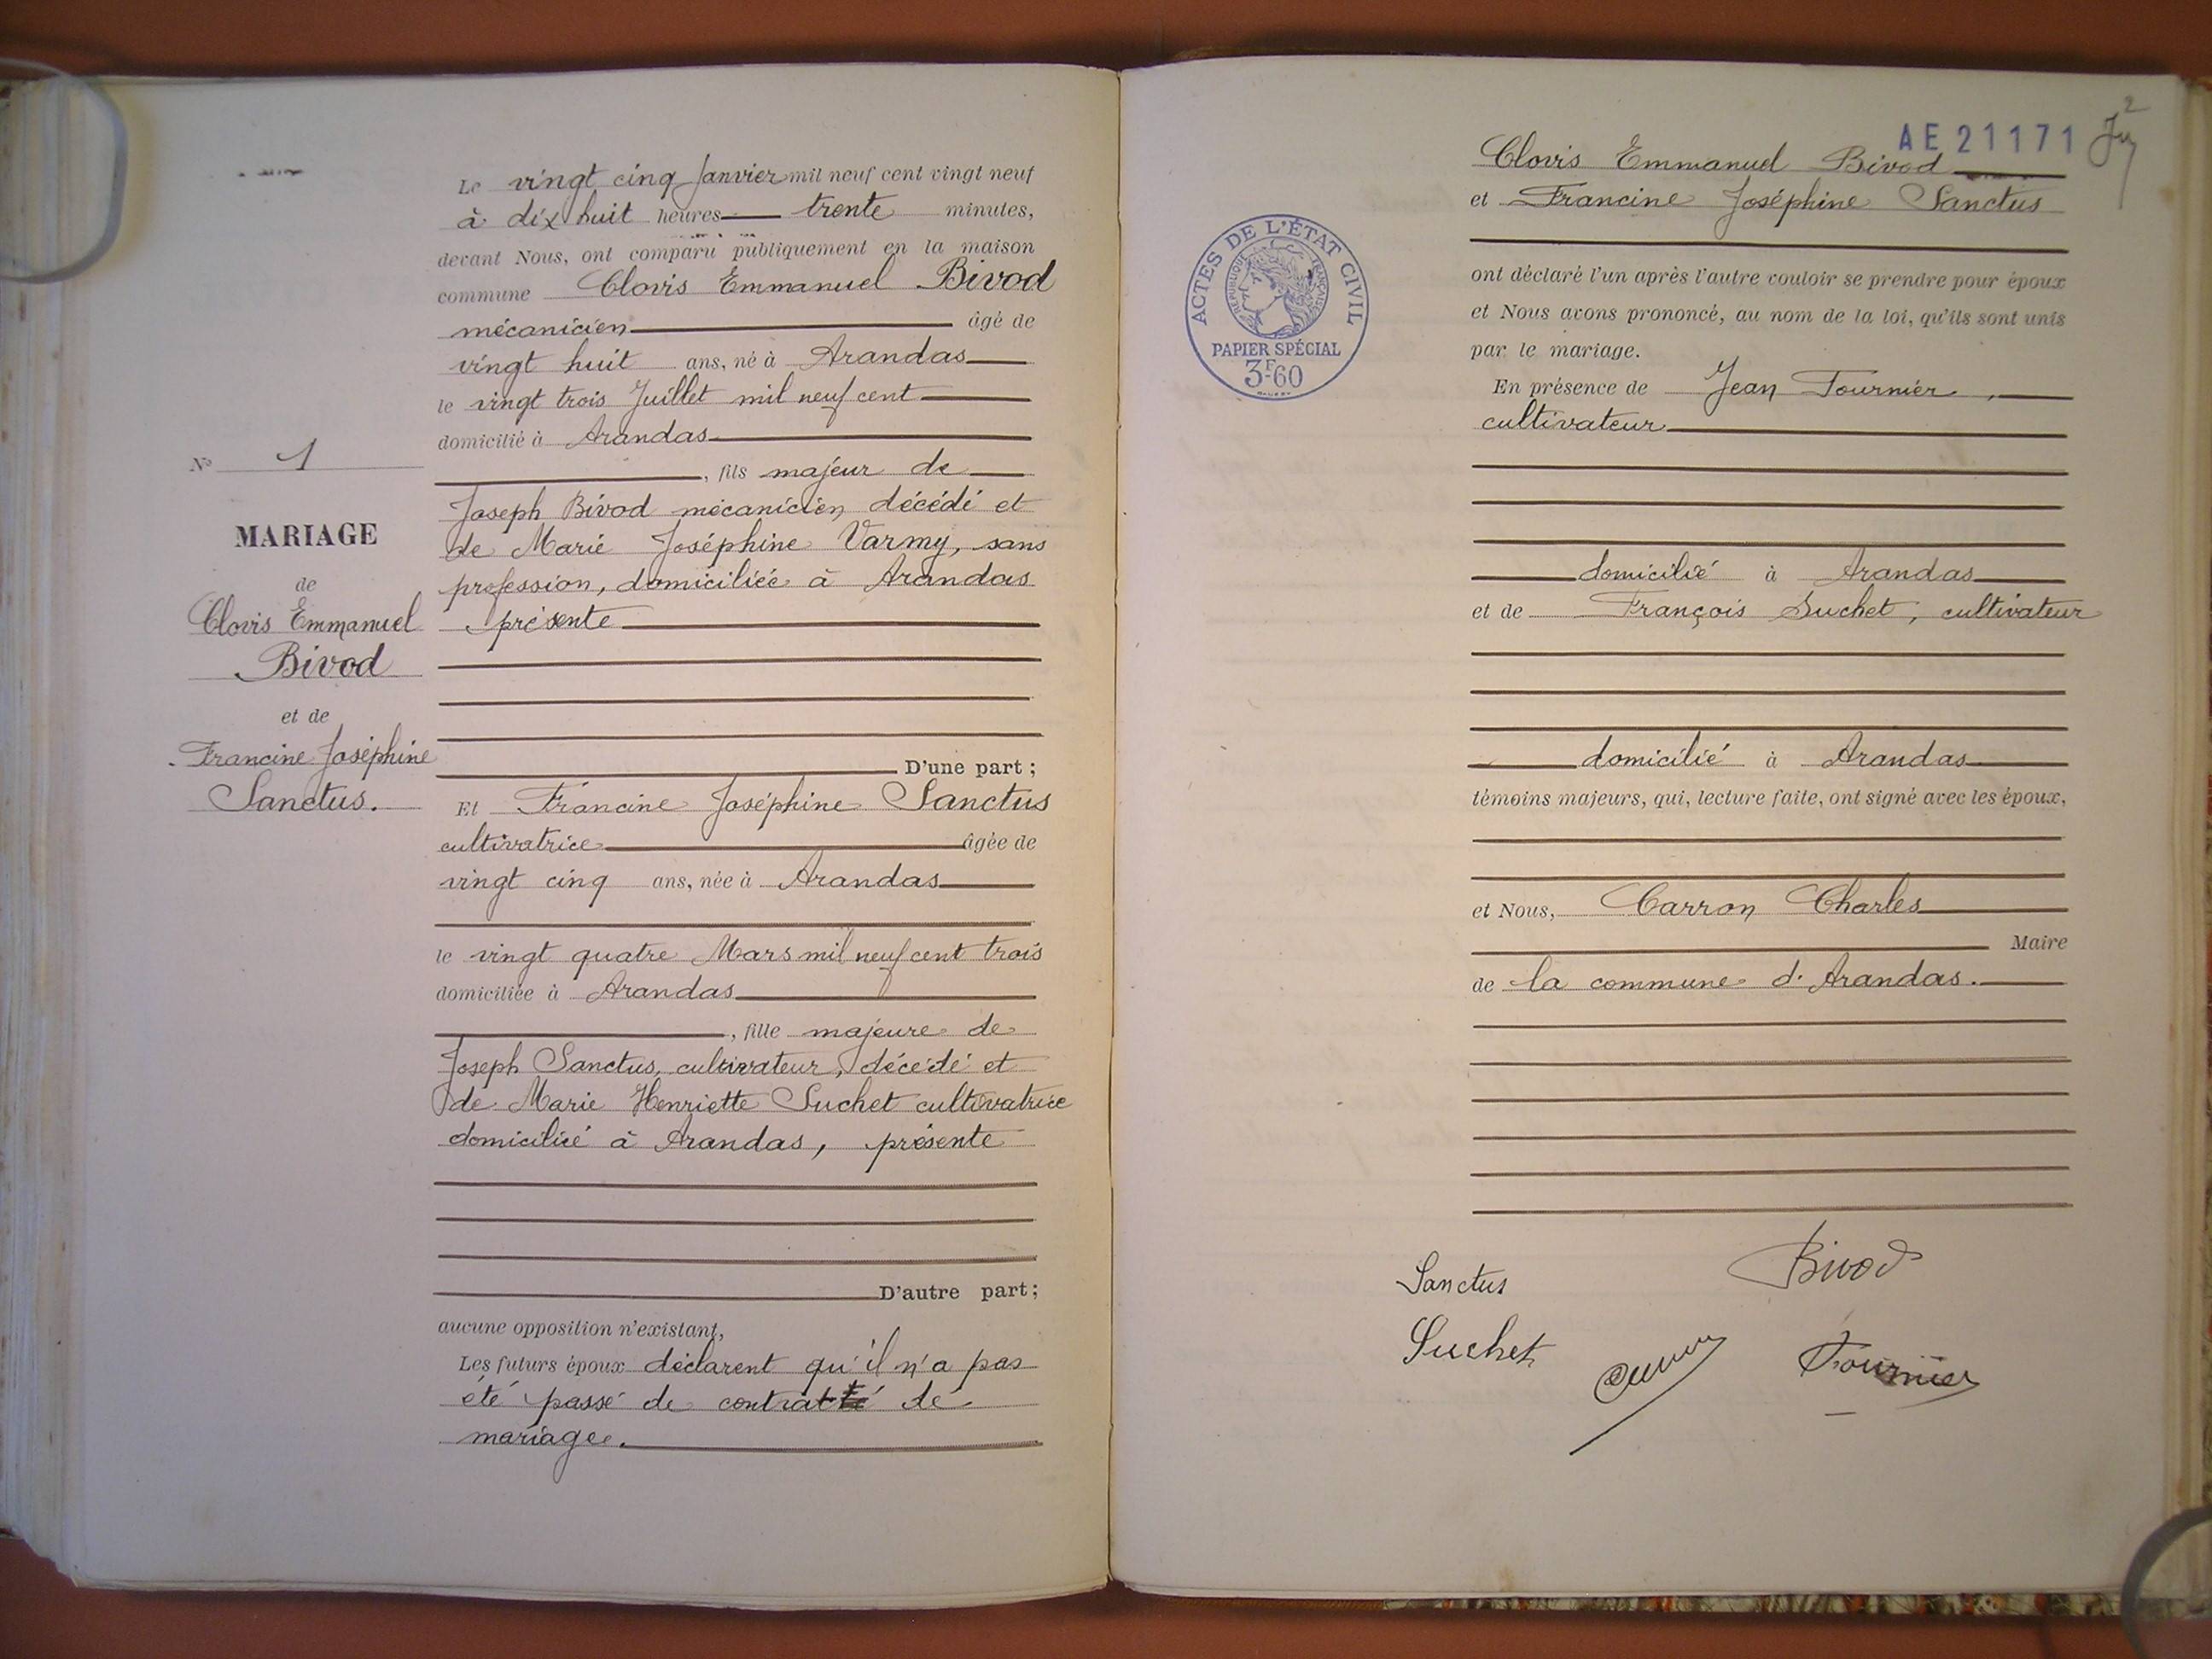 N° 1
MARIAGE
de
Clovis Emmanuel
Bivod
et de
Francine Joséphine
Sanctus.
Le vingt cinq Janvier mil neuf cent vingt neuf
à dix huit heures trente minutes,
devant Nous, ont comparu publiquement en la maison
commune Clovis Emmanuel Bivod
mécanicien âgé de
vingt huit ans, né à Arandas
le vingt trois Juillet mil neuf cent
domicilié à Arandas
, fils majeur de
Joseph Bivod mécanicien décédé et
de Marie Joséphine Varmy, sans
profession, domiciliée à Arandas
présente
D'une part ;
Et Francine Joséphine Sanctus
cultivatrice âgée de
vingt cinq ans, née à Arandas
le vingt quatre Mars mil neuf cent trois
domiciliée à Arandas
, fille majeure de
Joseph Sanctus, cultivateur, décédé et
de Marie Henriette Suchet cultivatrice
domicilié à Arandas, présente
D'autre part ;
aucune opposition n'existant,
Les futurs époux déclarent qu'il n'a pas
été passé de contrat de
mariage.
AE 21171
2
ACTES DE L'ÉTAT CIVIL
RÉPUBLIQUE FRANÇAISE
PAPIER SPÉCIAL
3F.60
Clovis Emmanuel Bivod
et Francine Joséphine Sanctus
ont déclaré l'un après l'autre vouloir se prendre pour époux
et Nous avons prononcé, au nom de la loi, qu'ils sont unis
par le mariage.
En présence de Jean Fournier,
cultivateur
domicilié à Arandas
et de François Suchet, cultivateur
domicilié à Arandas
témoins majeurs, qui, lecture faite, ont signé avec les époux,
et Nous, Carron Charles
Maire
de la commune d'Arandas.
Sanctus Bivod
Suchet Fournier